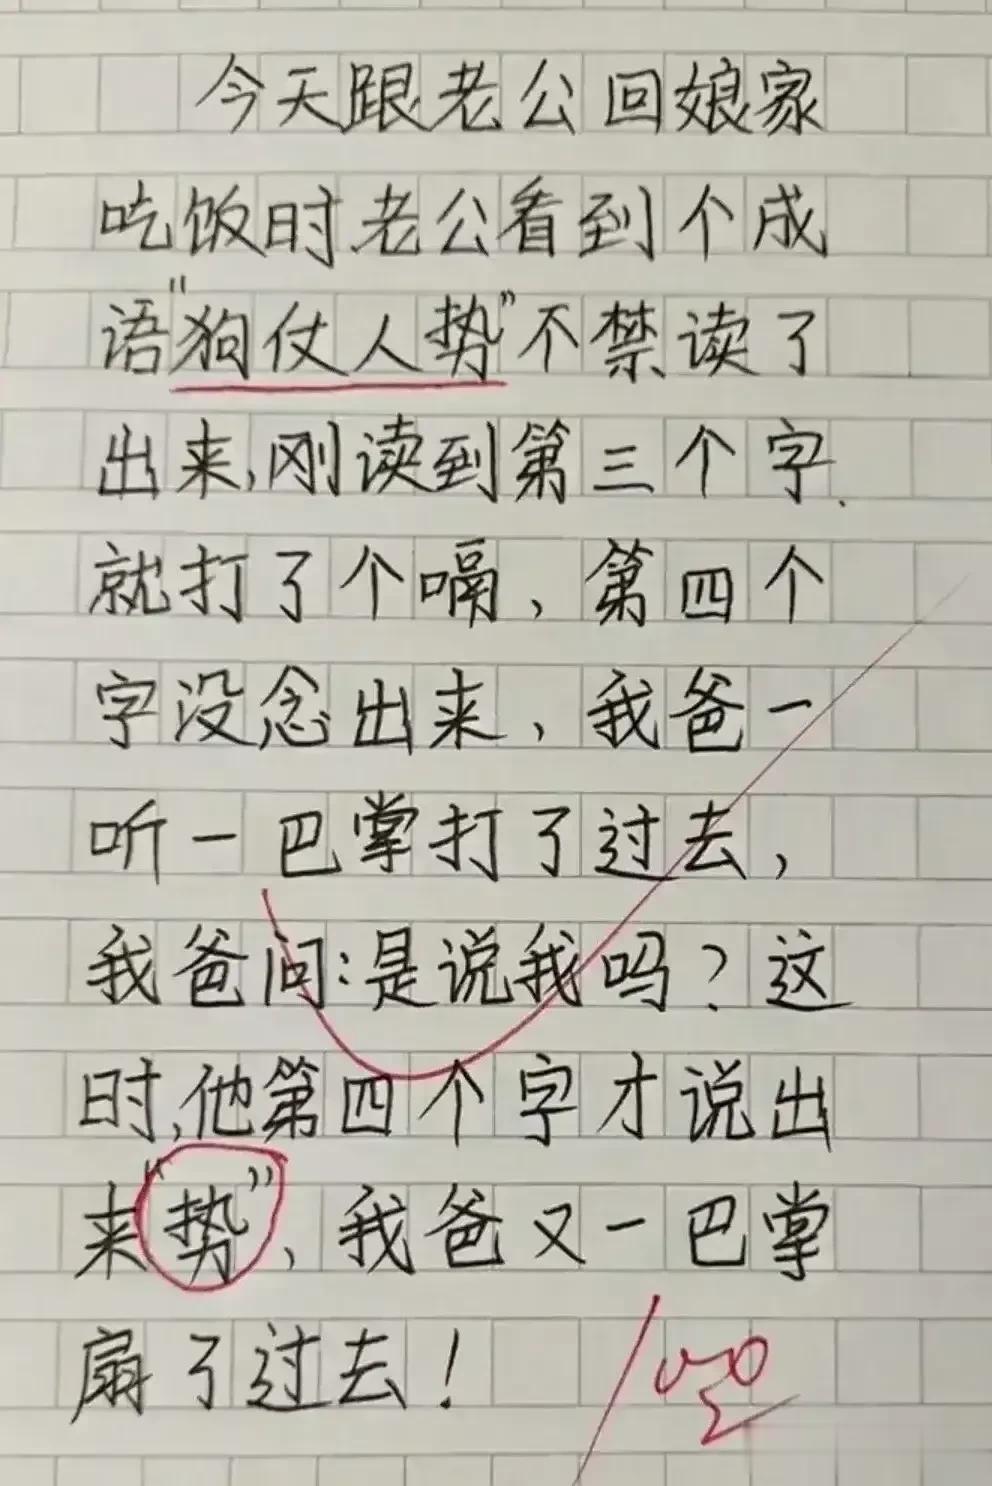 今天跟老公回娘家
吃饭时老公看到个成
语“狗仗人势”不禁读了
出来,刚读到第三个字.
就打了个嗝,第四个
字没念出来,我爸一
听一巴掌打了过去,
我爸问:是说我吗?这
时,他第四个字才说出
来“势”,我爸又一巴掌
扇了过去!